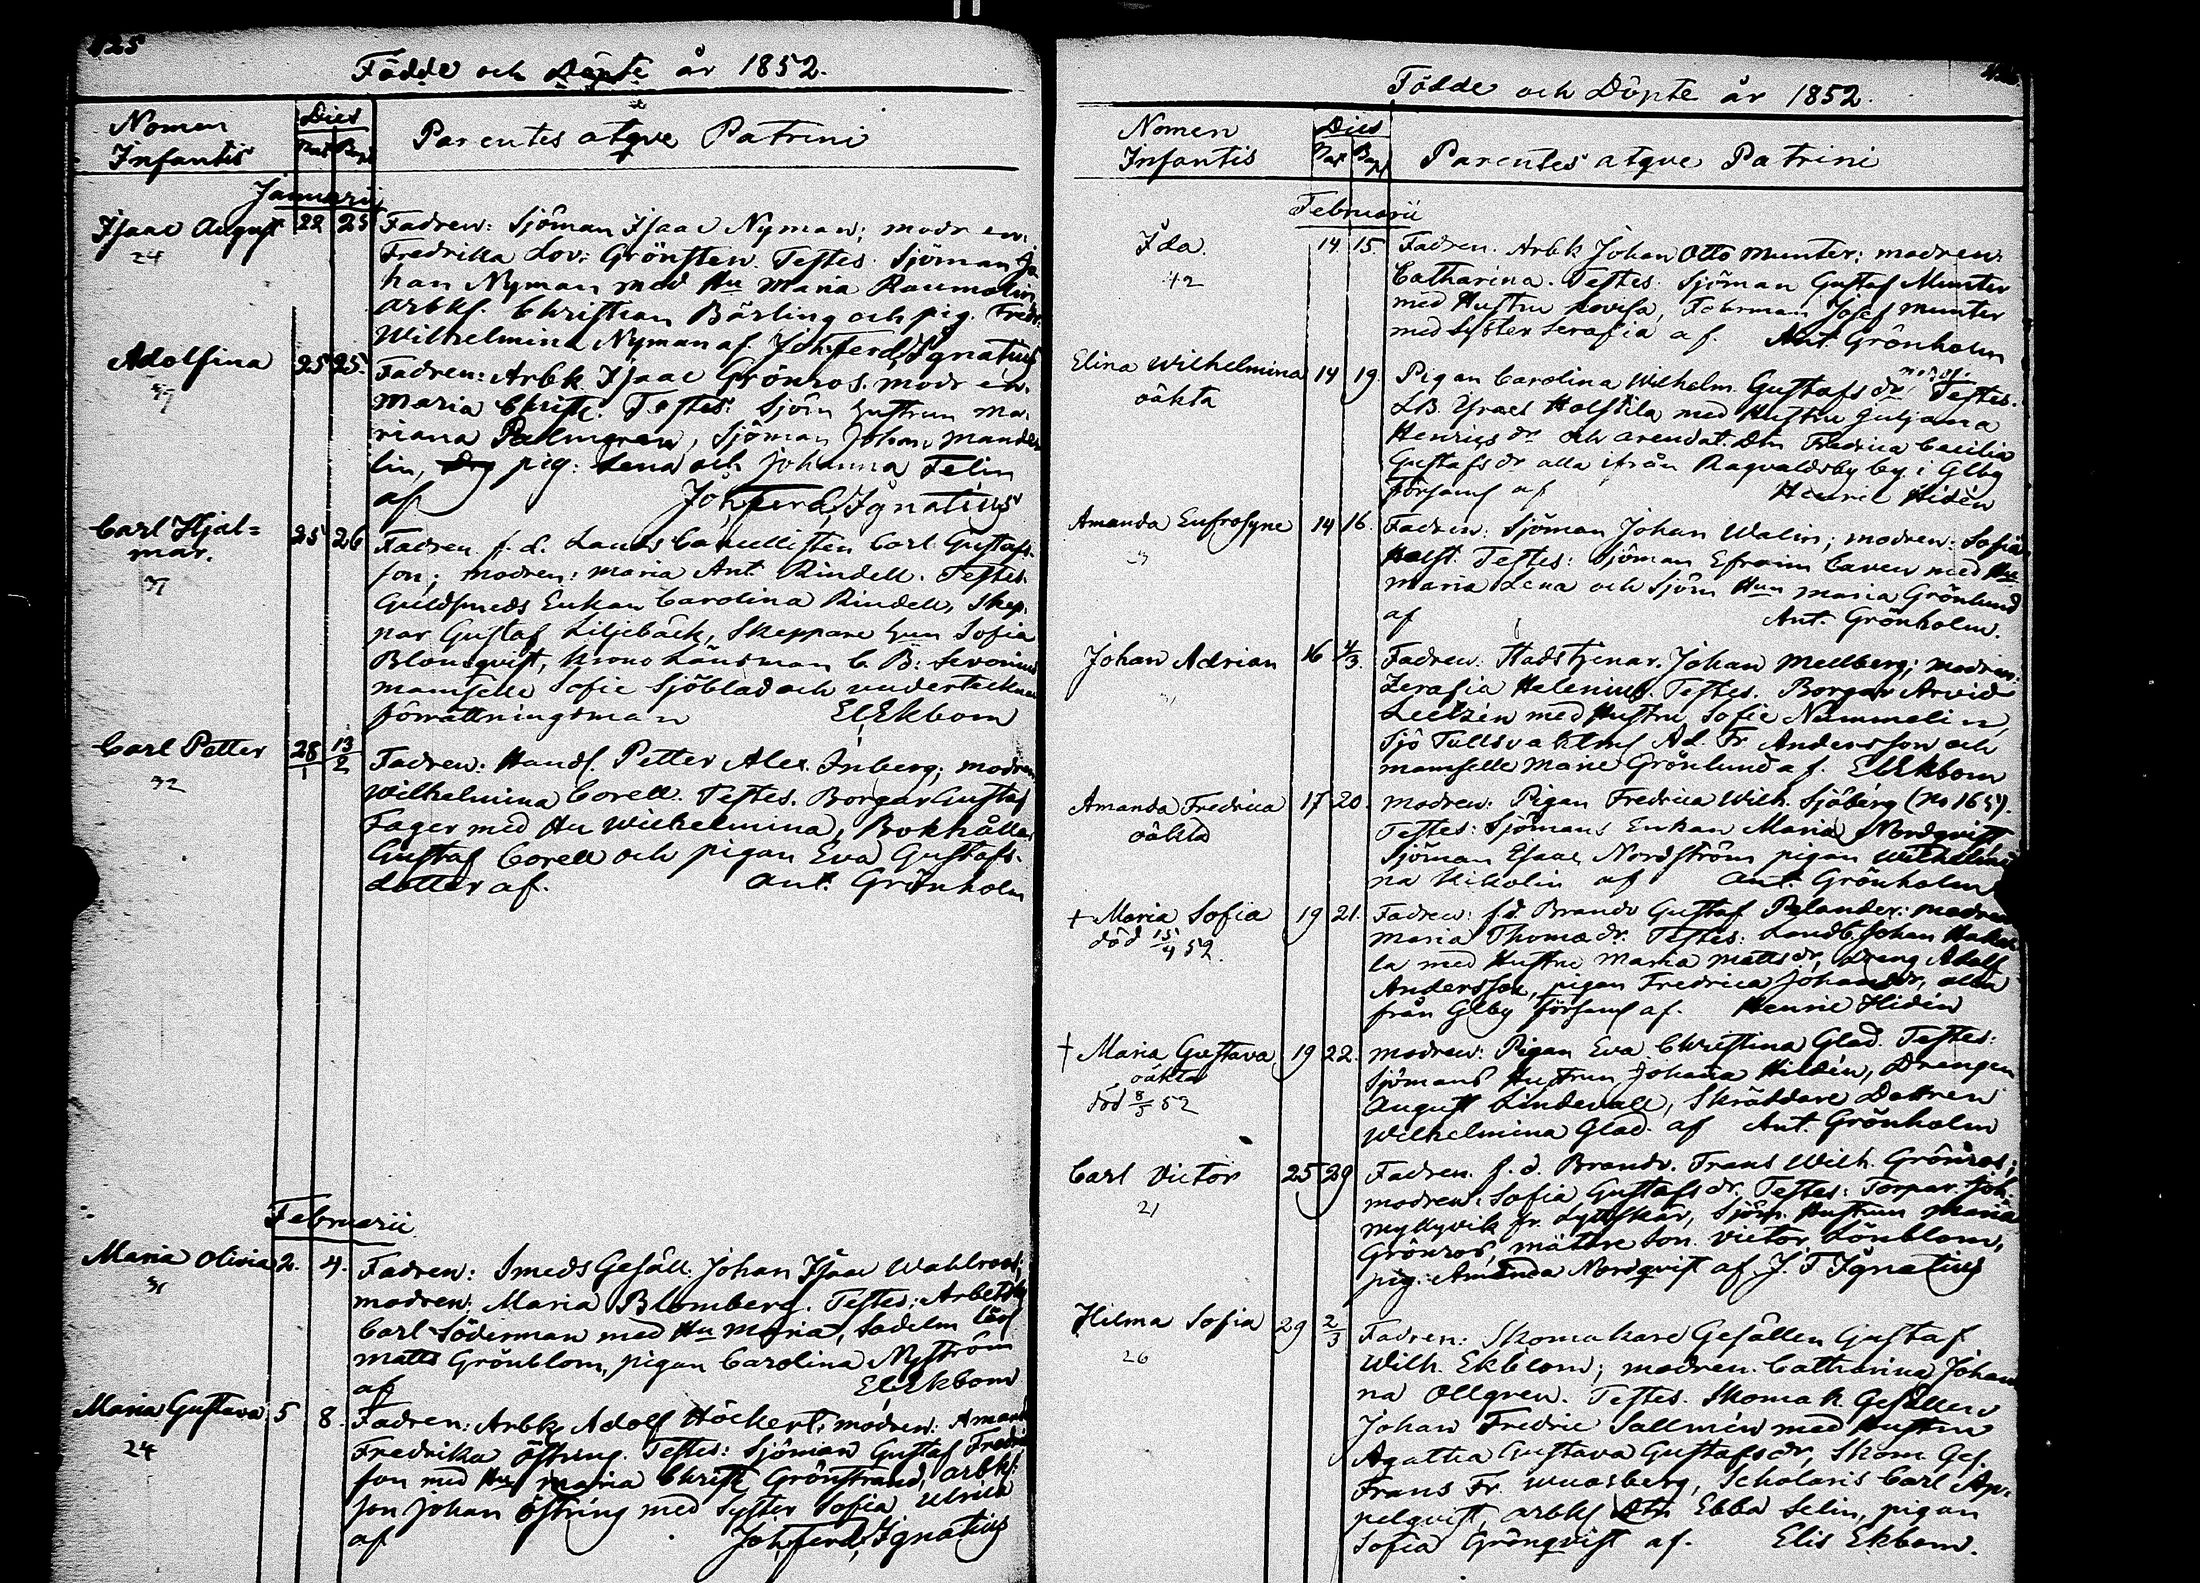 425
Födde och Döpte år 1852.
Nomen
Infantis
Dies
Nat Bapt
Parentes atqve Patrini
Januarii
Isaac August 22 25 Fadren: Sjöman Isaac Nyman; modren:
24 Fredrika Lov: Grönsten. Testes: Sjöman Jo-
han Nyman med Hu Maria Raumolin,
arbks. Christian Bärling och pig. Fredr:
Wilhelmina Nyman af Joh. Ferd. Ignatius
Adolfina 25 25. Fadren: Arbk Isaac Grönros. modren:
Maria Christ. Testes: Sjöm hustrun Ma-
riana Palmgren, Sjöman Johan Mande-
lin, pig: Lena och Johanna Felin
af Joh. Ferd. Ignatius
Carl Hjal= 25 26 Fadren f. d. Lands Cancellisten Carl Gustafs-
mar.
37 son; modren: Maria Ant. Rindell. Testes.
Guldsmeds Enkan Carolina Rindell, Skep-
par Gustaf Liljebäck, Skeppare hun Sofia
Blomqvist, Krono Länsman C. B:
mamselle Sofie Sjöblad och undertecknad
förrättningsman El. Ekbom
Carl Petter 28/1 13/2 Fadren: Handl Petter Alex. Inberg; modren
32 Wilhelmina Corell. Testes. Borgar Gustaf
Fager med Hu Wilhelmina, Bokhållar
Gustaf Corell och pigan Eva Gustafs-
dotter af. Ant. Grönholm
Februarii
Maria Olivia 2. 4. Fadren: Smeds Gesäll Johan Isaac Wahlroos;
modren: Maria Blomberg. Testes: Arbetsk
Carl Söderman med Hu Maria, Sadelm
Matts Grönblom, pigan Carolina Nyström
af El. Ekbom
Maria Gustava 5 8. Fadren: Arbk Adolf Höckert; modren: Amand
24 Fredrika Östring. Testes: Sjöman Gustaf Fredric
son med Hu Maria Christ Grönstrand, arbks:
son Johan Östring med Syster Sofia Ulrica
af Joh. Ferd. Ignatius
Födde och Döpte år 1852.
Nomen
Infantis
Dies
Nat Bapt
Parentes atqve Patrini
Februarii
Ida. 14 15. Fadren. Arbk Johan Otto Munter; modren:
42 Catharina. Testes: Sjöman Gustaf Munter
med Hustru Lovisa, Forman Josef Munter
med Syster Serafia af. Ant. Grönholm
Elina Wilhelmina 14 19 Pigan Carolina Wilhelm. Gustafsdr. Testes.
oäkta LB. Israel Holstila med Hustru Juljana
Henrics dr och arendat. Dtn Fredrica Cecilia
Gustafs dr alla ifrån Ragvaldsby by i Glby
församl af Henric Hidén
Amanda Eufrosyne 14 16. Fadren: Sjöman Johan Walin; modren: Sofia
Holst. Testes: Sjöman Efraim Caven med Hu
Maria Lena och Sjöm Hun Maria Grönlund
af Ant. Grönholm.
Johan Adrian 16 4/3. Fadren: Stadstjenar. Johan Mellberg; modren:
Serafia Helenius. Testes. Borgar Arvid
med Hustru Sofie Nummelin,
Sjö Tullsvaktms Ad. Fr Andersson och
mamselle Marie Grönlund af. El. Ekbom
Amanda Fredrica 17 20. modren: Pigan Fredrica Wilh. Sjöberg (No 165).
oäkta Testes: Sjömans Enkan Maria Nordqvist
Sjöman Isaac Nordström pigan Wilhelmi-
na Kikolin af Ant. Grönholm
† Maria Sofia 19 21. Fadren: f.d. Brandv Gustaf Palander; modren
död 15/4 52. Maria Thomædr. Testes: Landb. Johan
la med Hustru Maria Mattsdr, dreng Adolf
Andersson, pigan Fredrica Johansdr, alla
från Glby församl af. Henric Hidén
† Maria Gustava 19 22. modren: Pigan Eva Christina Glad. Testes:
oäkta Sjömans Hustrun Johana Hildén, Drengen
död 8/5 52 August Lindevall, Skräddare Dottren
Wilhelmina Glad. af Ant. Grönholm
Carl Victor 25 29 Fadren. f. d. Brandv. Frans Wilh. Grönros;
21 modren: Sofia Gustafs dr. Testes: Torpar. Joh.
Myllyvik fr. Lyttskär, Sjöm. Hustrun Maria
Grönros, mältare Son. Victor Lönblom,
pig. Amanda Nordqvist af J. F Ignatius
Hilma Sofia 29 2/3 Fadren: Skomakare Gesällen Gustaf
26 Wilh. Ekblom; modren: Catharina Johan-
na Ollgren. Testes. Skomak Gesällen
Johan Fredric Sallmén med Hustru
Agatha Gustava Gustafsdr, Skom Ges.
Frans Fr. Scholaris Carl Ap-
pelqvist, arbks Dtn Ebba Selin, pigan
Sofia Grönqvist af. Elis Ekbom.